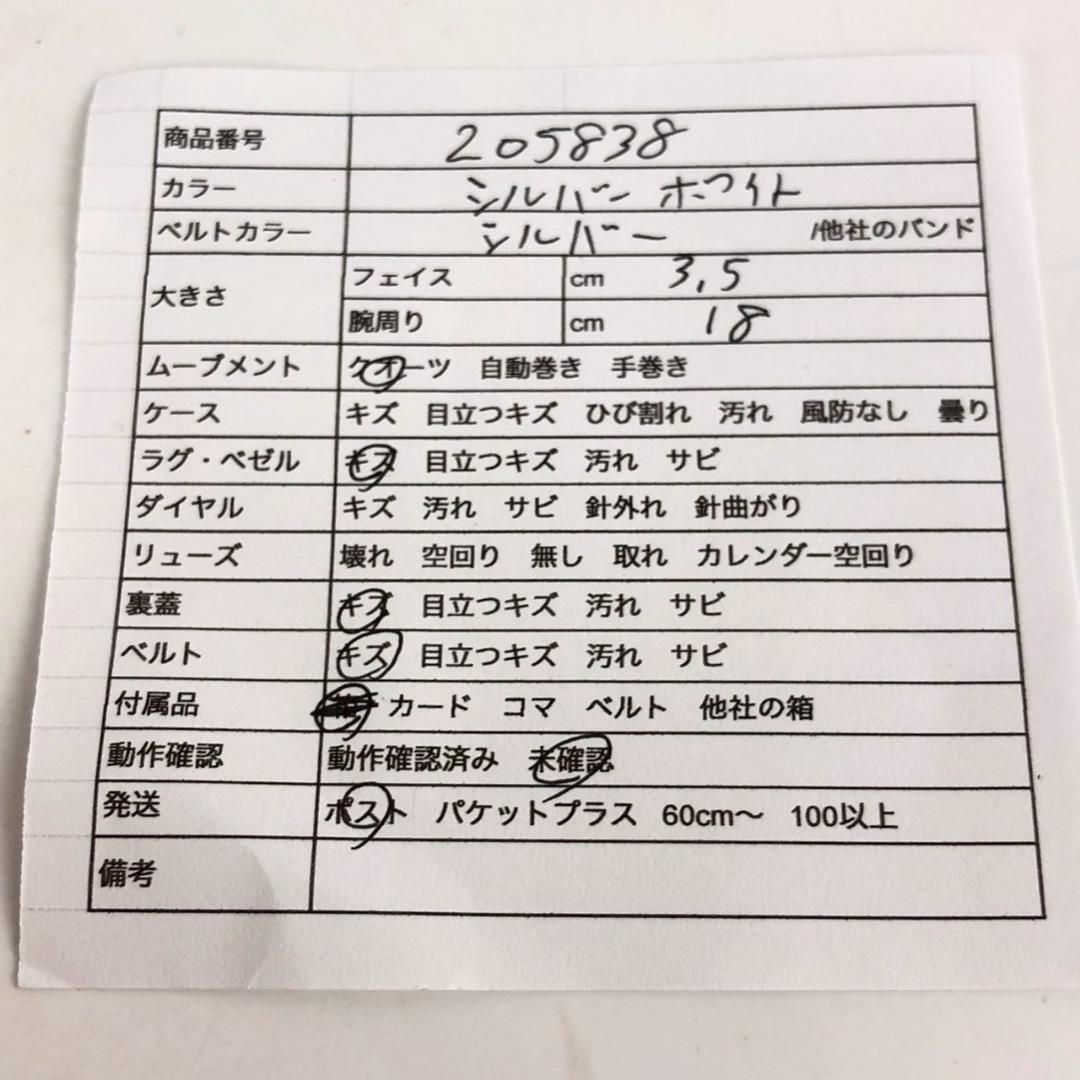 商品番号 205838
カラー シルバー ホワイト
ベルトカラー シルバー /他社のバンド
大きさ フェイス cm 3,5
腕周り cm 18
ムーブメント クオーツ 自動巻き 手巻き
ケース キズ 目立つキズ ひび割れ 汚れ 風防なし 曇り
ラグ・ベゼル キズ 目立つキズ 汚れ サビ
ダイヤル キズ 汚れ サビ 針外れ 針曲がり
リューズ 壊れ 空回り 無し 取れ カレンダー空回り
裏蓋 キズ 目立つキズ 汚れ サビ
ベルト キズ 目立つキズ 汚れ サビ
付属品 カード コマ ベルト 他社の箱
動作確認 動作確認済み 未確認
発送 ポスト パケットプラス 60cm〜 100以上
備考